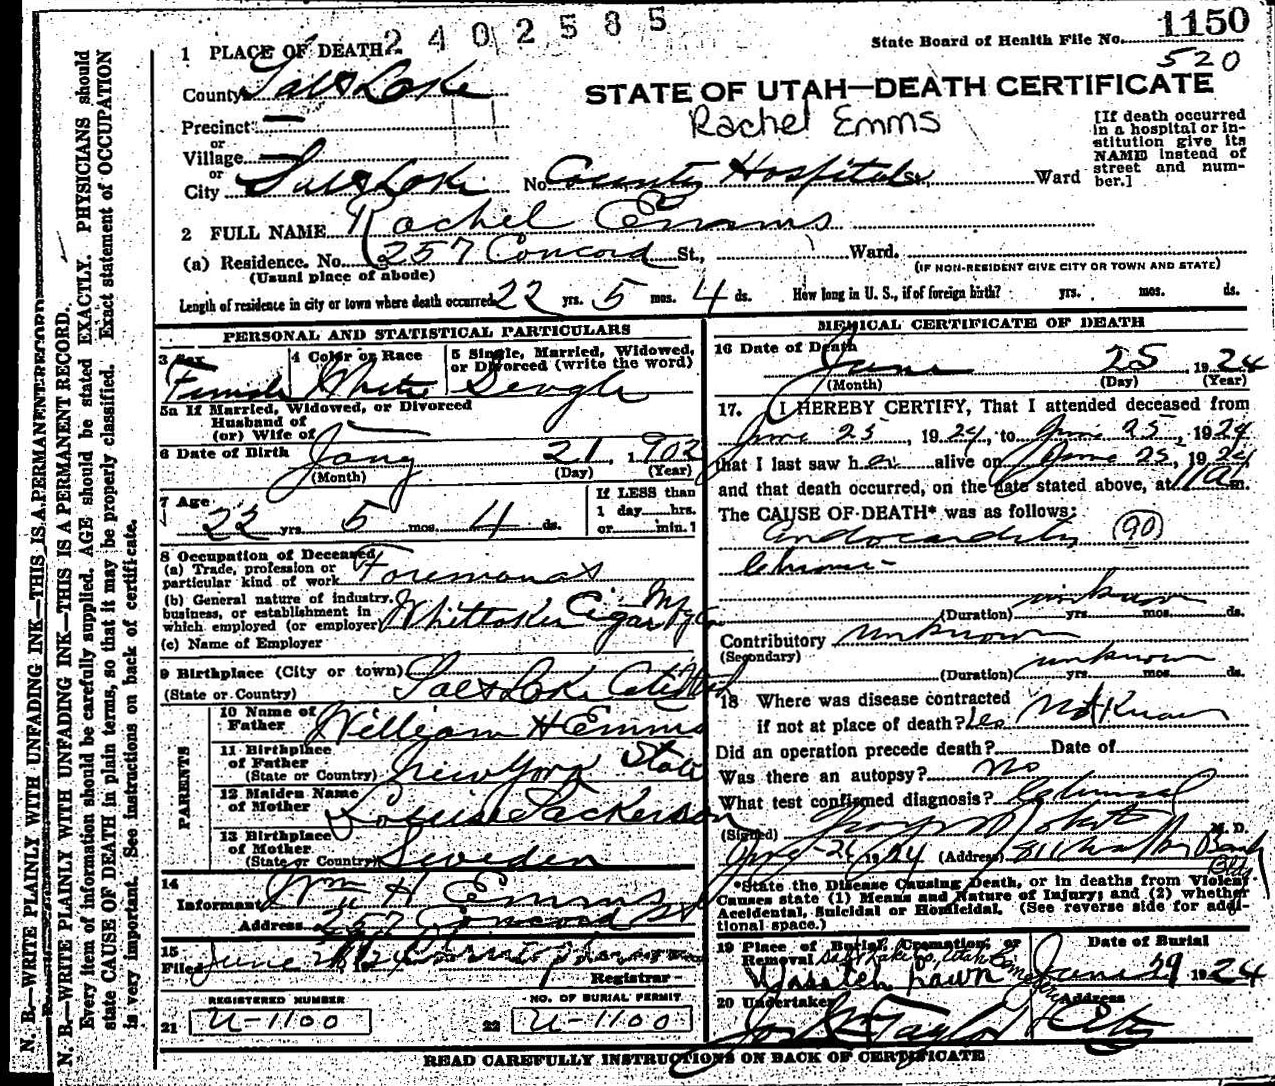 2402585
State Board of Health File No. 1150
520
1 PLACE OF DEATH
County Salt Lake
STATE OF UTAH—DEATH CERTIFICATE
Rachel Emms
Precinct —
or
Village —
or
City Salt Lake No. County Hospital St., Ward
[If death occurred
in a hospital or in-
stitution give its
NAME instead of
street and num-
ber.]
2 FULL NAME Rachel Emms
(a) Residence. No. 257 Concord St., Ward.
(Usual place of abode)
(IF NON-RESIDENT GIVE CITY OR TOWN AND STATE)
Length of residence in city or town where death occurred 22 yrs. 5 mos. 4 ds. How long in U. S., if of foreign birth? yrs. mos. ds.
PERSONAL AND STATISTICAL PARTICULARS
3 Sex
Female
4 Color or Race
White
5 Single, Married, Widowed,
or Divorced (write the word)
Single
5a If Married, Widowed, or Divorced
Husband of
(or) Wife of
6 Date of Birth Jany 21, 1902
(Month) (Day) (Year)
7 Age
22 yrs. 5 mos. 4 ds.
If LESS than
1 day hrs.
or min.
8 Occupation of Deceased
(a) Trade, profession or
particular kind of work
(b) General nature of industry,
business, or establishment in
which employed (or employer) Whittaker Cigar Mfg Co
(c) Name of Employer
9 Birthplace (City or town) Salt Lake City Utah
(State or Country)
PARENTS
10 Name of
Father William H Emms
11 Birthplace
of Father
(State or Country) New York State
12 Maiden Name
of Mother Louise
13 Birthplace
of Mother
(State or Country) Sweden
14
Informant Wm H Emms
Address 257 Concord St
15
Filed June 1924
Registrar
REGISTERED NUMBER
21 U-1100
NO. OF BURIAL PERMIT
22 U-1100
MEDICAL CERTIFICATE OF DEATH
16 Date of Death
June 25, 1924
(Month) (Day) (Year)
17. I HEREBY CERTIFY, That I attended deceased from
June 25, 1924, to June 25, 1924
that I last saw her alive on June 25, 1924
and that death occurred, on the date stated above, at m.
The CAUSE OF DEATH* was as follows:
Endocarditis 90
chronic -
unknown
(Duration) yrs. mos. ds.
Contributory unknown
(Secondary)
unknown
(Duration) yrs. mos. ds.
18 Where was disease contracted
if not at place of death? Not Known
Did an operation precede death? Date of
Was there an autopsy? No
What test confirmed diagnosis? Clinical
(Signed) M. D.
1924 (Address) 811 Walker Bank
Bldg
*State the Disease Causing Death, or in deaths from Violent
Causes state (1) Means and Nature of Injury; and (2) whether
Accidental, Suicidal or Homicidal. (See reverse side for addi-
tional space.)
19 Place of Burial, Cremation, or
Removal Salt Lake Co, Utah
Wasatch Lawn Cemetery
Date of Burial
June 29 1924
20 Undertaker
Jos Wm Taylor
Address
City
READ CAREFULLY INSTRUCTIONS ON BACK OF CERTIFICATE
N. B.—WRITE PLAINLY WITH UNFADING INK—THIS IS A PERMANENT RECORD.
N. B.—WRITE PLAINLY WITH UNFADING INK—THIS IS A PERMANENT RECORD.
Every item of information should be carefully supplied. AGE should be stated EXACTLY. PHYSICIANS should
state CAUSE OF DEATH in plain terms, so that it may be properly classified. Exact statement of OCCUPATION
is very important. See instructions on back of certificate.